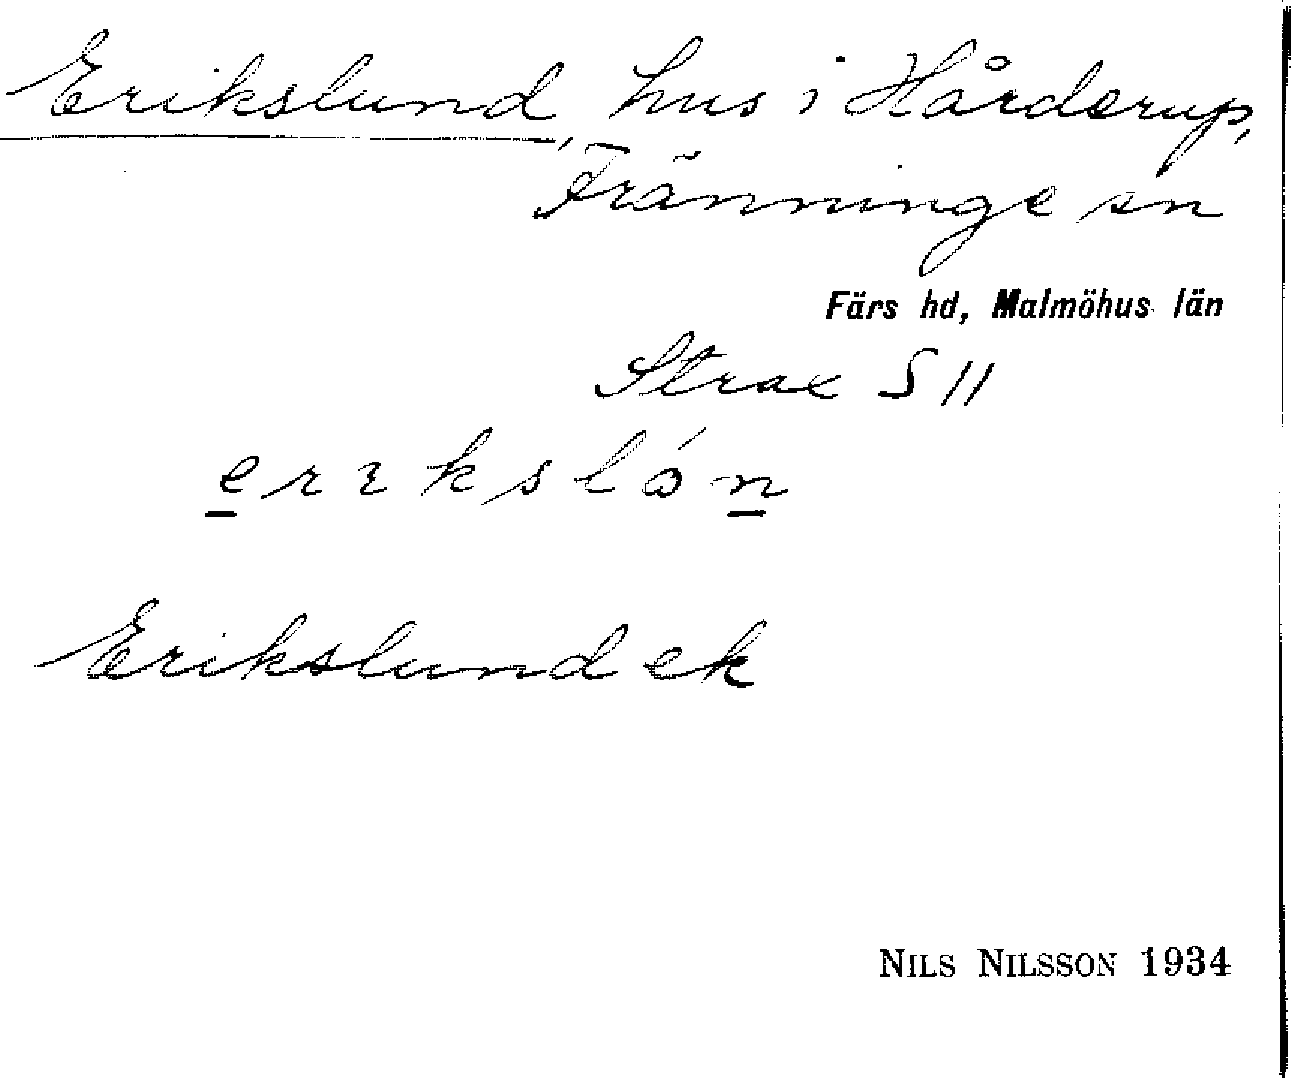 Erikslund, hus i Hårderup,
Fränninge sn
Färs hd, Malmöhus län
Strax S 11
erikslón
Erikslund ek
NILS NILSSON 1934